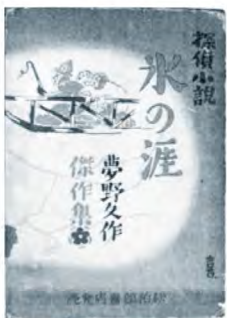 探偵小說
氷の涯
夢野久作
傑作集